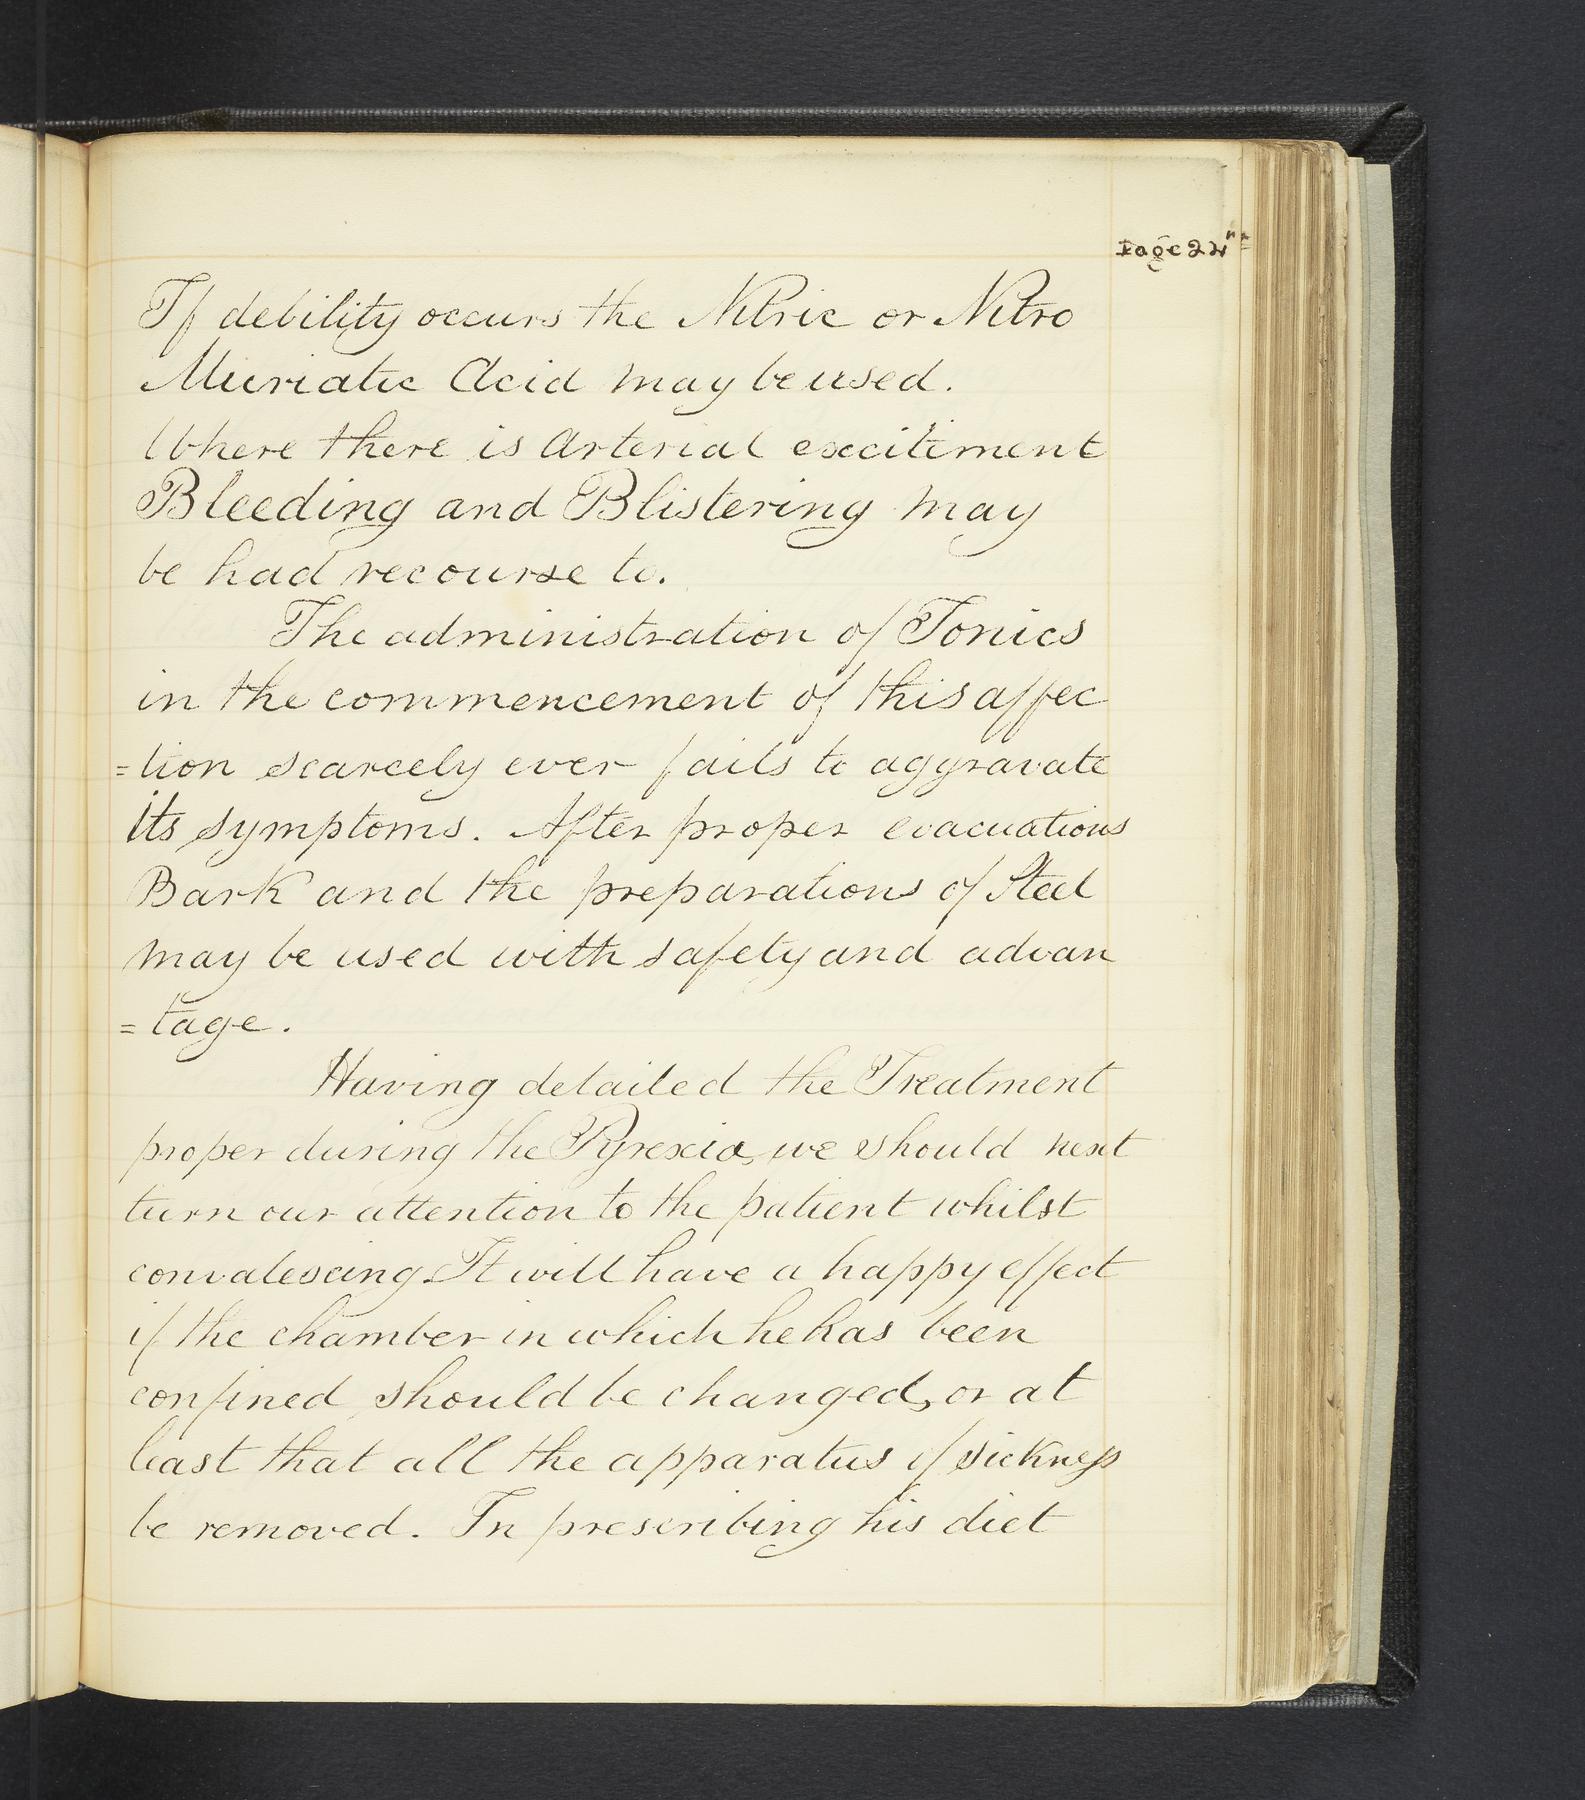 Page 22nd
If debility occurs the Nitric or Nitro
Muriatic Acid may be used.
Where there is Arterial excitiment
Bleeding and Blistering may
be had recourse to.
The administration of Tonics
in the commencement of this affec
=tion scarcely ever fails to aggravate
its symptoms. After proper evacuations
Bark and the preparations of Steel
may be used with safety and advan
=tage.
Having detailed the Treatment
proper during the Pyrexia, we should next
turn our attention to the patient whilst
convalescing. It will have a happy effect
if the chamber in which he has been
confined should be changed, or at
least that all the apparatus of sickness
be removed. In prescribing his diet